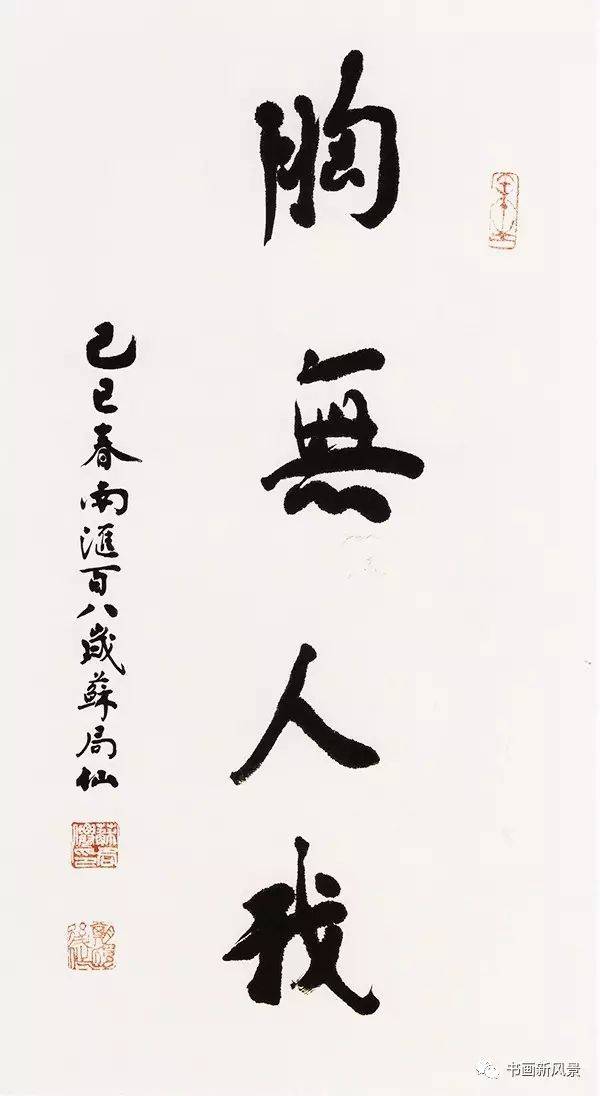 胸無人我
己巳春南滙百八歲蘇局仙
书画新风景